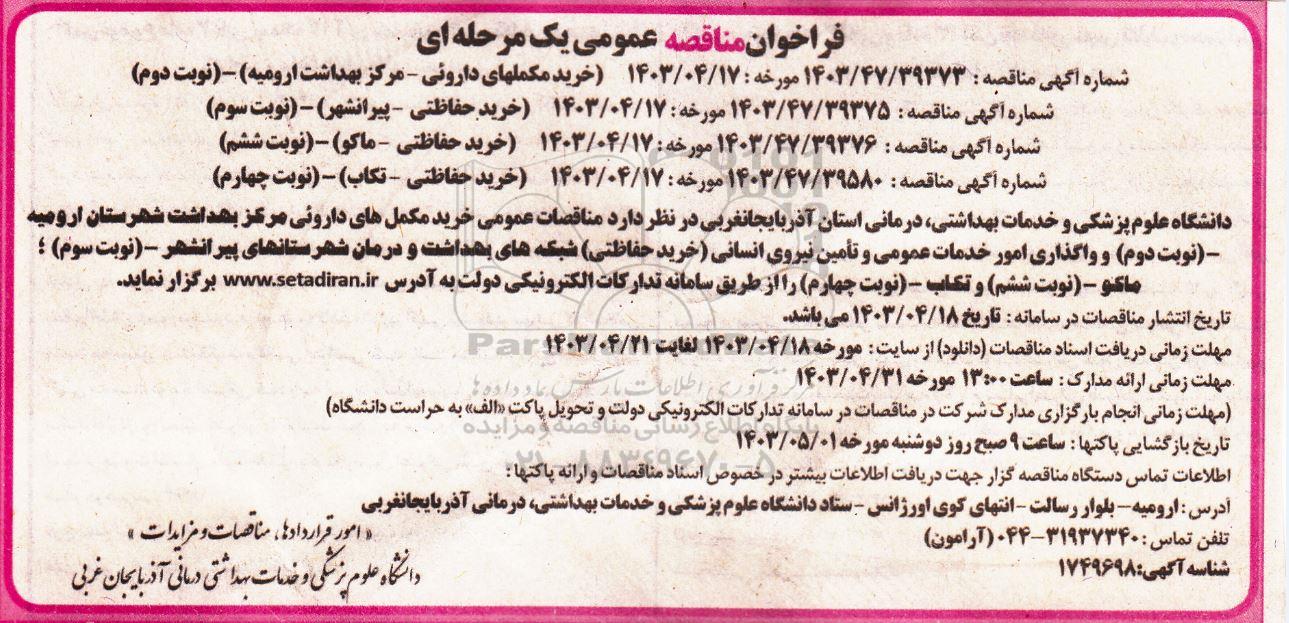 فراخوان مناقصه عمومی یک مرحله ای
شماره آگهی مناقصه : ۱۴۰۳/۴۷/۳۹۳۷۳ مورخه : ۱۴۰۳/۰۴/۱۷ (خرید مکملهای داروئی - مرکز بهداشت ارومیه) -(نوبت دوم)
شماره آگهی مناقصه : ۱۴۰۳/۴۷/۳۹۳۷۵ مورخه : ۱۴۰۳/۰۴/۱۷ (خرید حفاظتی - پیرانشهر) -(نوبت سوم)
شماره آگهی مناقصه : ۱۴۰۳/۴۷/۳۹۳۷۶ مورخه : ۱۴۰۳/۰۴/۱۷ (خرید حفاظتی - ماکو) -(نوبت ششم)
شماره آگهی مناقصه : ۱۴۰۳/۴۷/۳۹۵۸۰ مورخه : ۱۴۰۳/۰۴/۱۷ (خرید حفاظتی - تکاب) -(نوبت چهارم)
دانشگاه علوم پزشکی و خدمات بهداشتی، درمانی استان آذربایجانغربی در نظر دارد مناقصات عمومی خرید مکمل های داروئی مرکز بهداشت شهرستان ارومیه
-(نوبت دوم) و واگذاری امور خدمات عمومی و تأمین نیروی انسانی (خرید حفاظتی) شبکه های بهداشت و درمان شهرستانهای پیرانشهر -(نوبت سوم) ؛
ماکو -(نوبت ششم) و تکاب -(نوبت چهارم) را از طریق سامانه تدارکات الکترونیکی دولت به آدرس www.setadiran.ir برگزار نماید.
تاریخ انتشار مناقصات در سامانه : تاریخ ۱۴۰۳/۰۴/۱۸ می باشد.
مهلت زمانی دریافت اسناد مناقصات (دانلود) از سایت : مورخه ۱۴۰۳/۰۴/۱۸ لغایت ۱۴۰۳/۰۴/۲۱
مهلت زمانی ارائه مدارک : ساعت ۱۳:۰۰ مورخه ۱۴۰۳/۰۴/۳۱
(مهلت زمانی انجام بارگزاری مدارک شرکت در مناقصات در سامانه تدارکات الکترونیکی دولت و تحویل پاکت «الف» به حراست دانشگاه)
تاریخ بازگشایی پاکتها : ساعت ۹ صبح روز دوشنبه مورخه ۱۴۰۳/۰۵/۰۱
اطلاعات تماس دستگاه مناقصه گزار جهت دریافت اطلاعات بیشتر در خصوص اسناد مناقصات و ارائه پاکتها :
آدرس : ارومیه - بلوار رسالت - انتهای کوی اورژانس - ستاد دانشگاه علوم پزشکی و خدمات بهداشتی، درمانی آذربایجانغربی
تلفن تماس : ۳۱۹۳۷۳۴۰-۰۴۴ (آرامون)
شناسه آگهی: ۱۷۴۹۶۹۸
« امور قراردادها، مناقصات و مزایدات »
دانشگاه علوم پزشکی و خدمات بهداشتی درمانی آذربایجان غربی
پایگاه اطلاع رسانی مناقصه و مزایده
۰۲۱-۸۸۳۴۹۶۷۰-۵